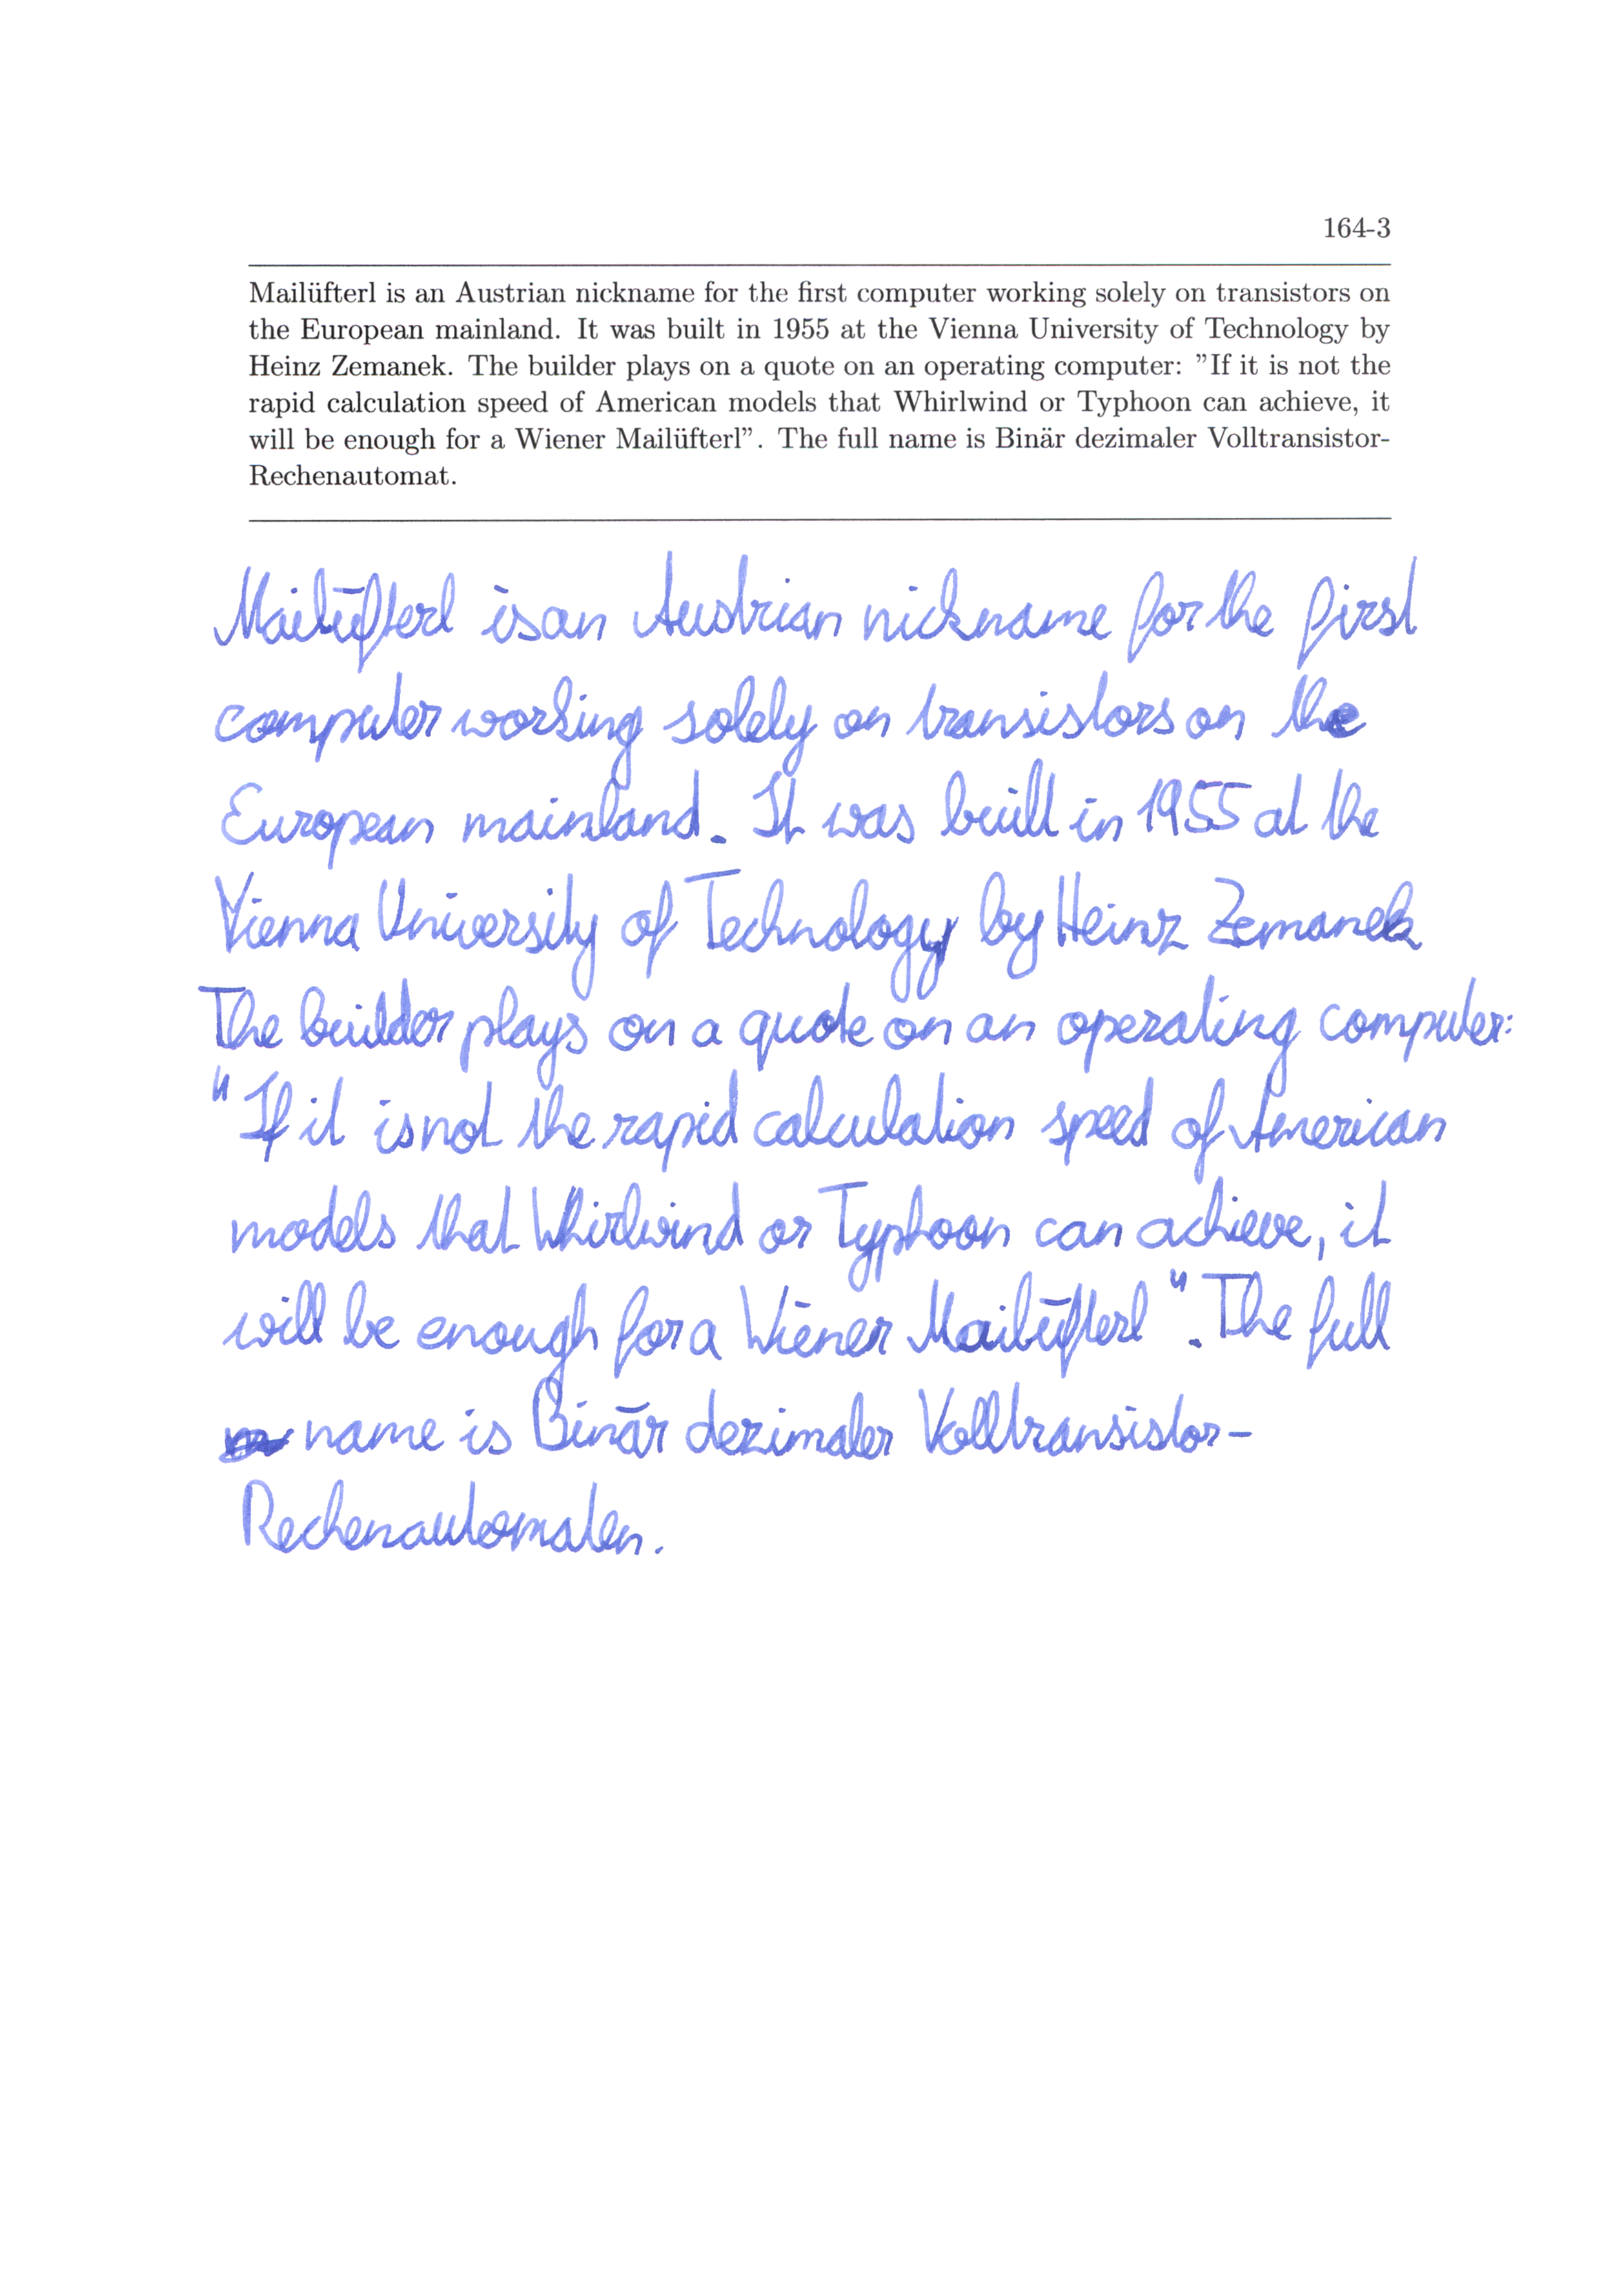 164-3
Mailüfterl is an Austrian nickname for the first computer working solely on transistors on
the European mainland. It was built in 1955 at the Vienna University of Technology by
Heinz Zemanek. The builder plays on a quote on an operating computer: ”If it is not the
rapid calculation speed of American models that Whirlwind or Typhoon can achieve, it
will be enough for a Wiener Mailüfterl”. The full name is Binär dezimaler Volltransistor-
Rechenautomat.
Mailüfterl is an Austrian nickname for the first
computer working solely on transistors on the
European mainland. It was built in 1955 at the
Vienna University of Technology by Heinz Zemanek
The builder plays on a quote on an operating computer:
"If it is not the rapid calculation speed of American
models that Whirlwind or Typhoon can achieve, it
will be enough for a Wiener Mailüfterl". The full
name is Binär dezimaler Volltransistor-
Rechenautomaten.